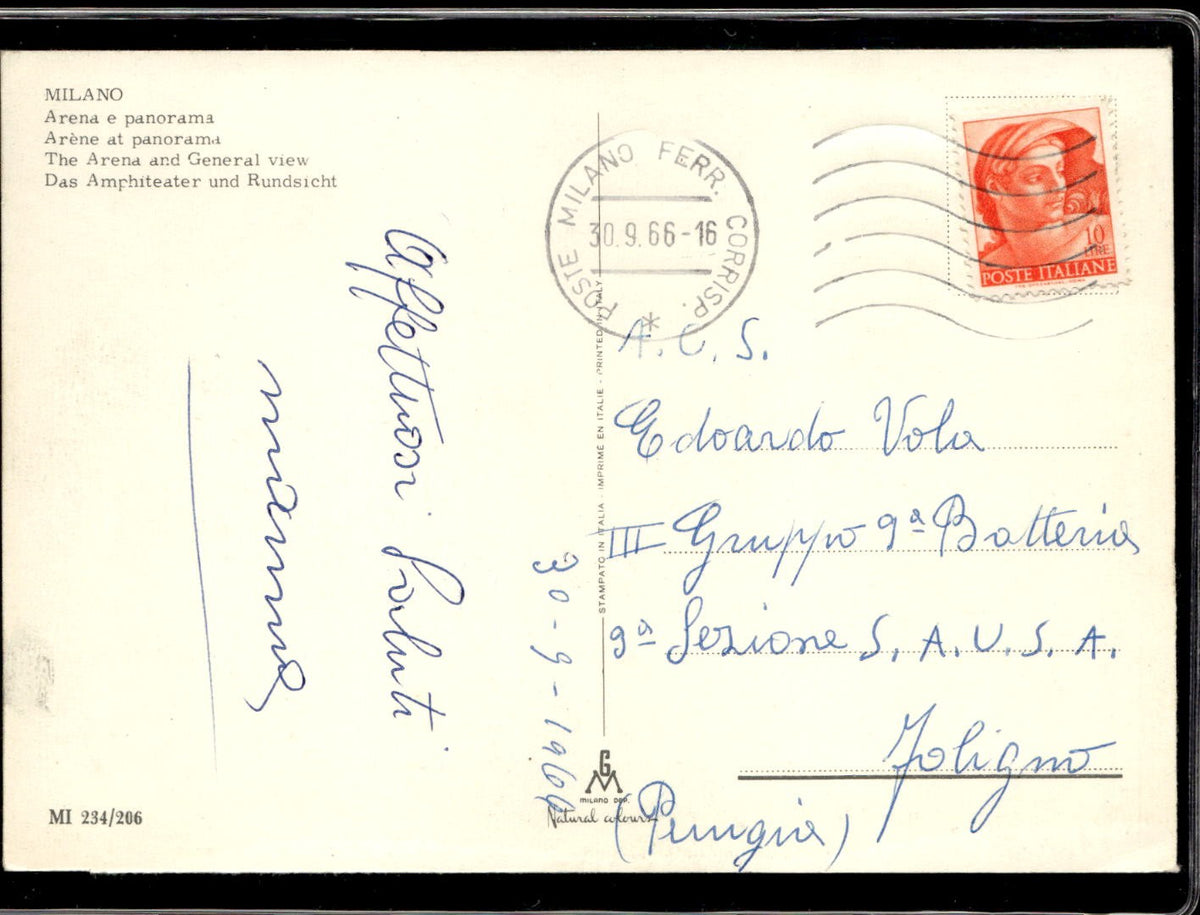 MILANO
Arena e panorama
Arène at panorama
The Arena and General view
Das Amphiteater und Rundsicht
Affettuosi Saluti
mamma
30-9-1966
MI 234/206
POSTE MILANO FERR. CORRISP. *
30.9.66-16
10
LIRE
POSTE ITALIANE
STAMPATO IN ITALIA - IMPRIME EN ITALIE - PRINTED IN ITALY
GM
MILANO DEP.
Natural colours
A.C.S.
Edoardo Vola
III Gruppo 9ª Batteria
9ª Sezione S.A.U.S.A.
Foligno
(Perugia)